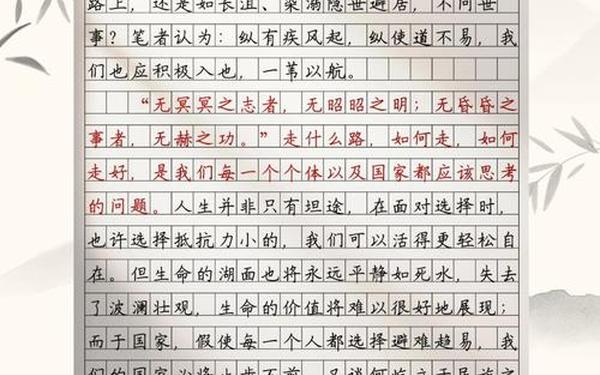 路上，还是如长沮、桀溺隐世避居，不问世
事？笔者认为：纵有疾风起，纵使道不易，我
们也应积极入也，一苇以航。
“无冥冥之志者，无昭昭之明；无昏昏之
事者，无赫之功。”走什么路，如何走，如何
走好，是我们每一个个体以及国家都应该思考
的问题。人生并非只有坦途，在面对选择时，
也许选择抵抗力小的，我们可以活得更轻松自
在。但生命的湖面也将永远平静如死水，失去
了波澜壮观，生命的价值将难以很好地展现；
而于国家，假使每一个人都选择避难趋易，我
们的国家必将止步不前，又谈何屹立于民族之